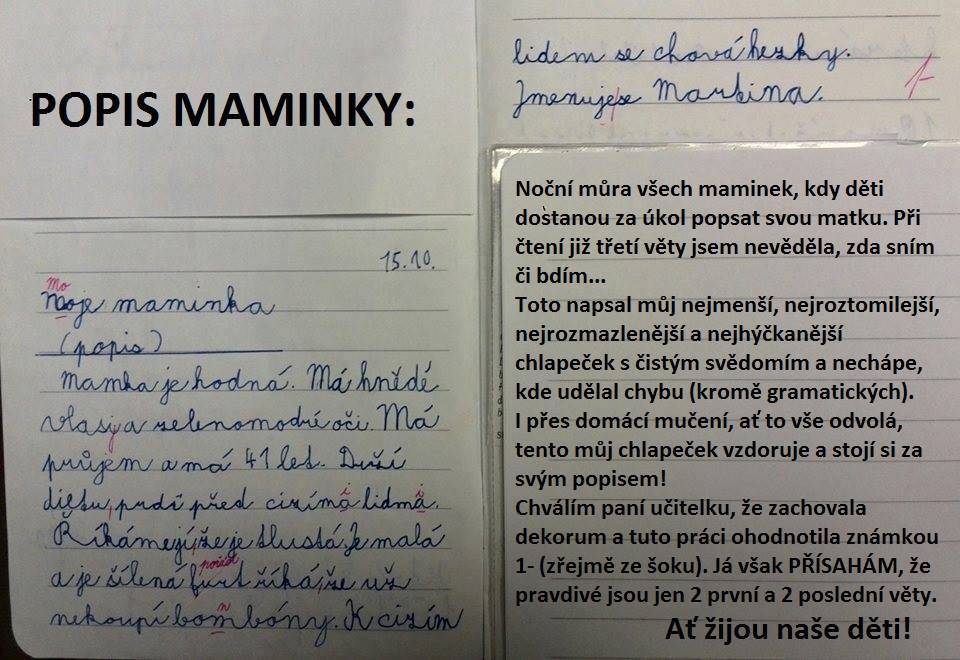 POPIS MAMINKY:
15.10.
mo
Moje maminka
(popis)
Mamka je hodná. Má hnědé
vlasy a zelenomodré oči. Má
průjem a má 41 let. Duší
dietu, prdí před cizíma lidma.
Říkáme jí, že je tlustá. Je malá
pořád
a je šílená furt říká, že už
n
nekoupí bombóny. K cizím
lidem se chová hezky.
Jmenuje se Martina.
1-
Noční můra všech maminek, kdy děti
dostanou za úkol popsat svou matku. Při
čtení již třetí věty jsem nevěděla, zda sním
či bdím...
Toto napsal můj nejmenší, nejroztomilejší,
nejrozmazlenější a nejhýčkanější
chlapeček s čistým svědomím a nechápe,
kde udělal chybu (kromě gramatických).
I přes domácí mučení, ať to vše odvolá,
tento můj chlapeček vzdoruje a stojí si za
svým popisem!
Chválím paní učitelku, že zachovala
dekorum a tuto práci ohodnotila známkou
1- (zřejmě ze šoku). Já však PŘÍSAHÁM, že
pravdivé jsou jen 2 první a 2 poslední věty.
Ať žijou naše děti!